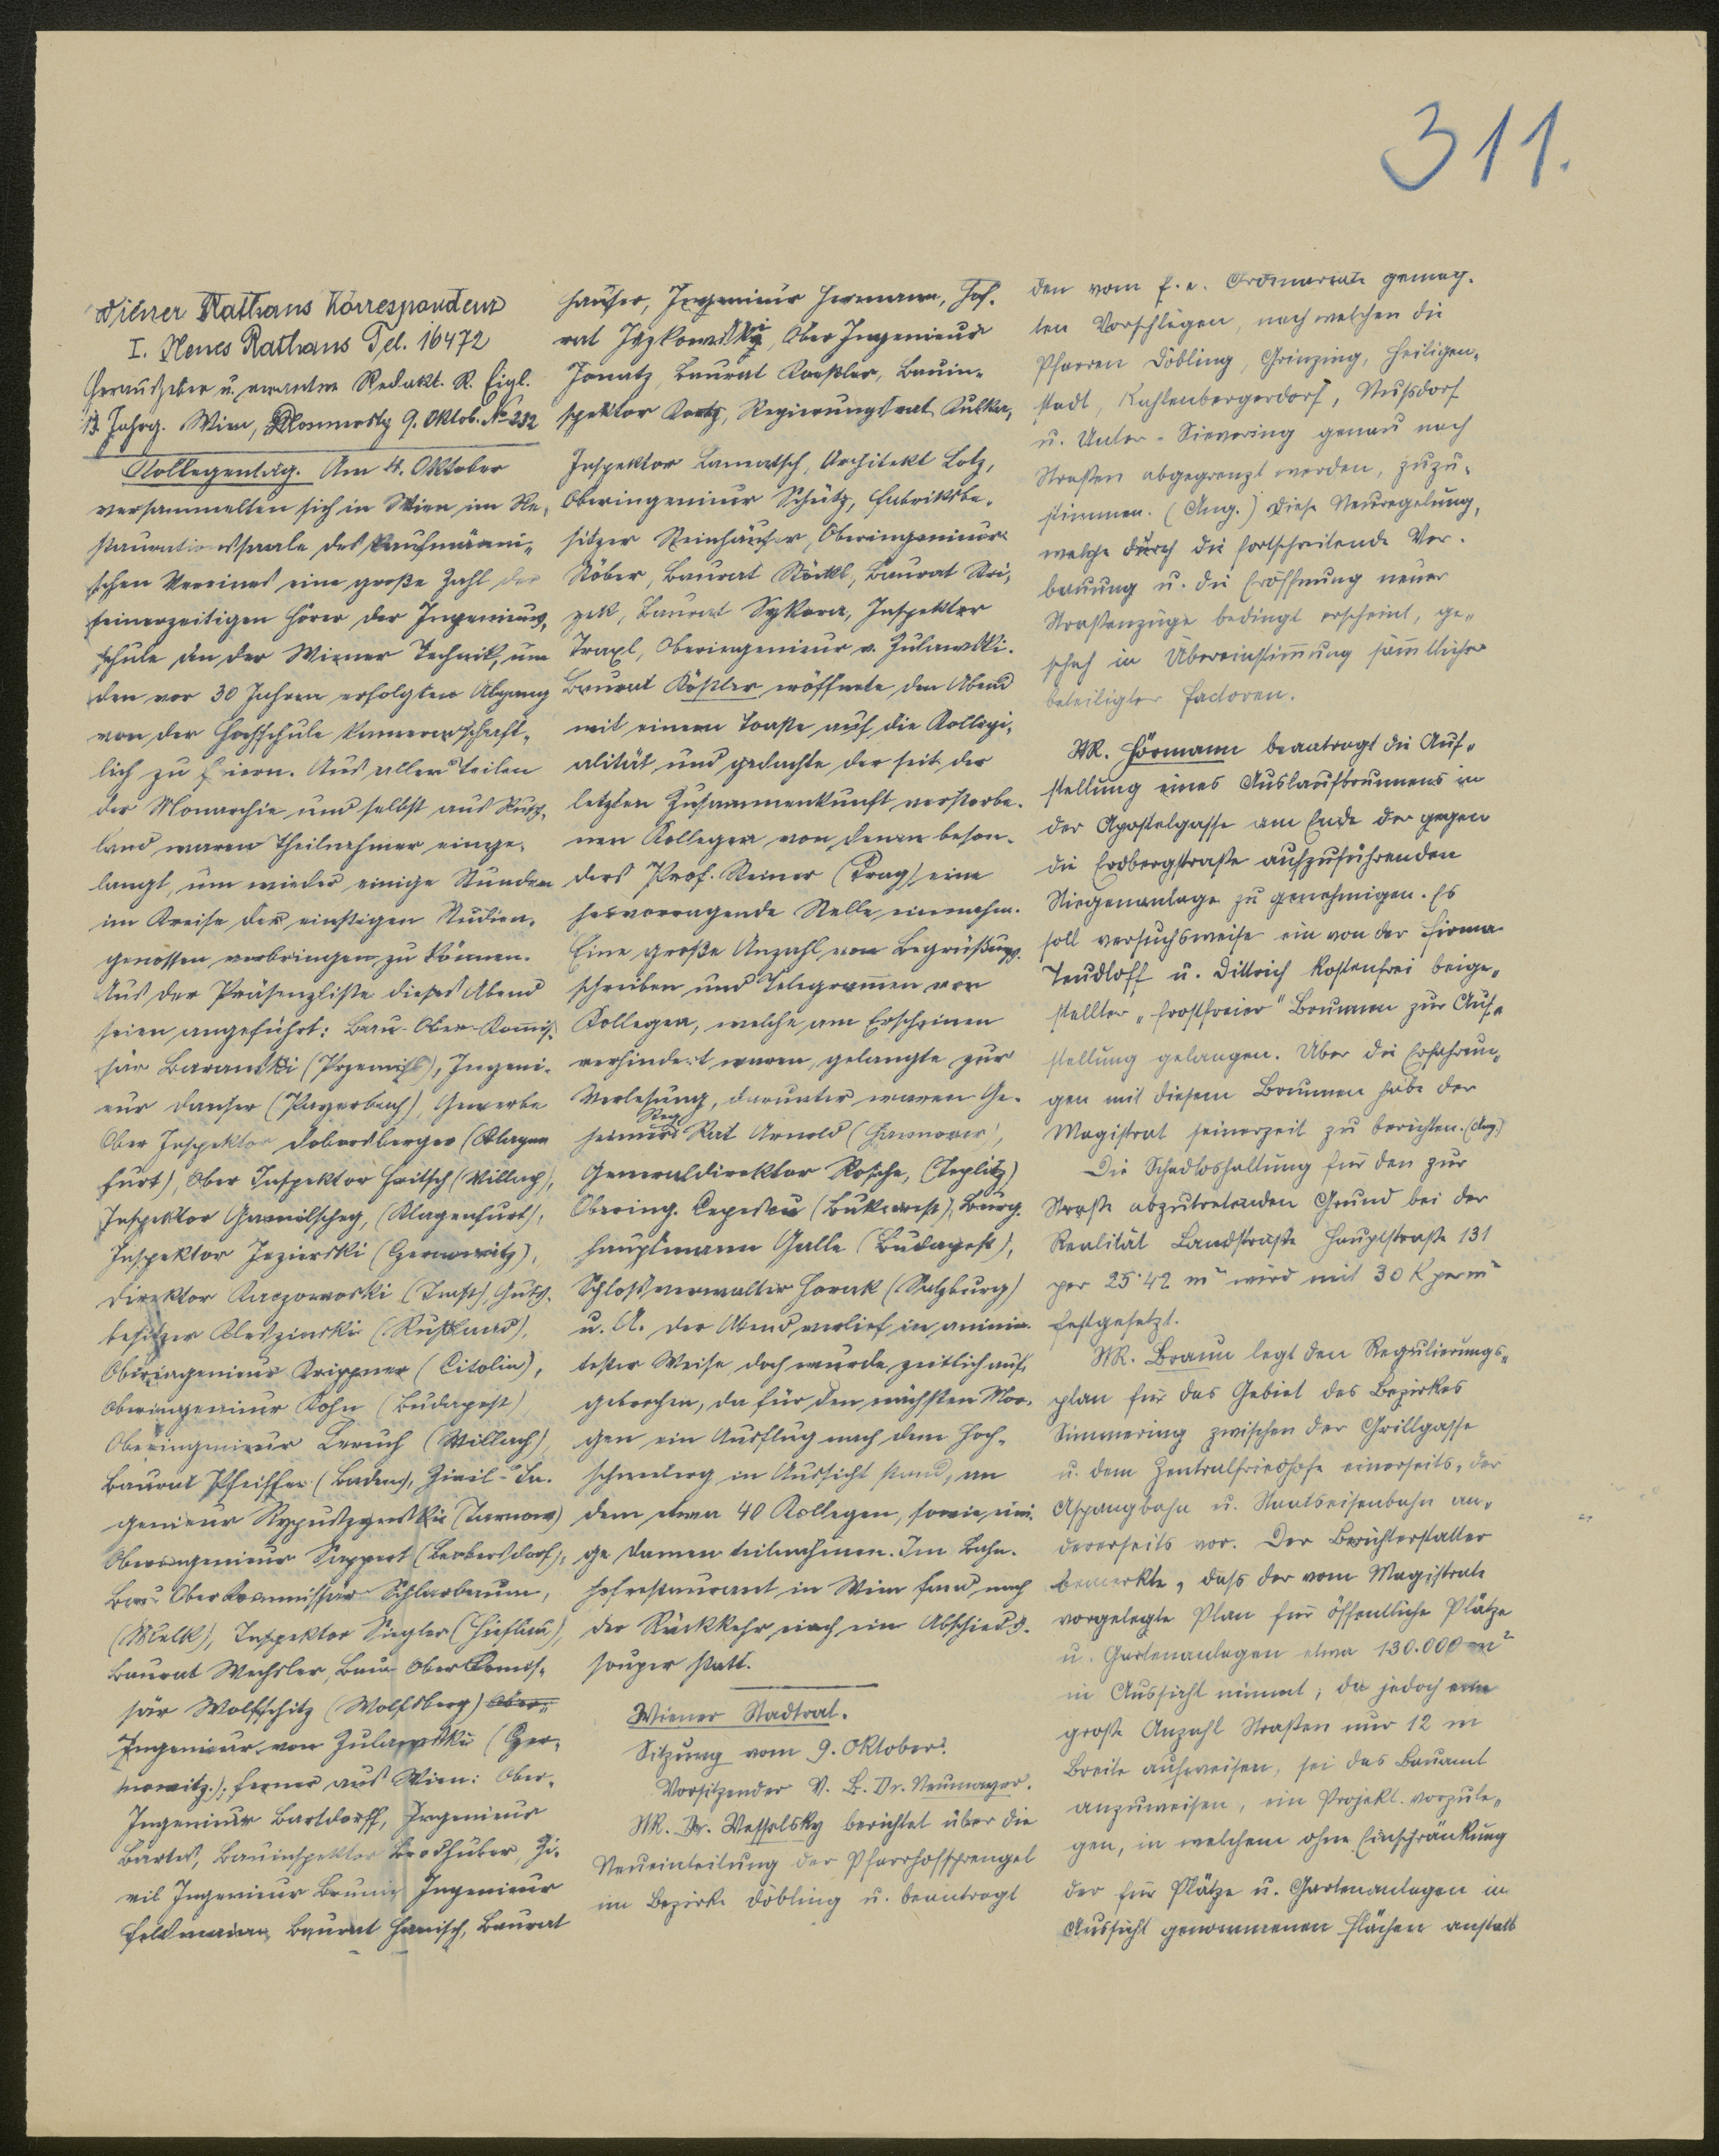 311.
Wiener Rathaus Korrespondenz
I. Neues Rathaus Tel. 16472
Herausgeber u. verantw. Redakt. R. Eigl.
13 Jahrg. Wien, Donnerstg 9. Oktob. No 232
Kollegentag. Am 4. Oktober
versammelten sich in Wien im Re-
staurationssaale des kaufmänni-
schen Vereines eine große Zahl der
seinerzeitigen Hörer der Ingenieur-
schule an der Wiener Technik, um
den vor 30 Jahren erfolgten Abgang
von der Hochschule kameradschaft-
lich zu feiern. Aus allen Teilen
der Monarchie und selbst aus Russ-
land waren Theilnehmer einge-
langt, um wieder einige Stunden
im Kreise der einstigen Studien-
genossen verbringen zu können.
Aus der Präsenzliste dieses Abend
seien angeführt: Bau-Ober-Komis-
sär Baranski (Przemisl), Ingeni-
eur Danser (Payerbach), Gewerbe
Ober Inspektor Dobersberger (Klagen
furt), Ober Inspektor Fritsch (Villach),
Inspektor Gamilscheg, (Klagenfurt),
Inspektor Jezierski (Czernowitz),
Direktor Kaczorowski (Triest), Guts-
besitzer Kleszinski (Russland),
Oberingenieur Krippner (Citolin),
Oberingenieur Kohn (Budapest)
Oberingenieur Leruch (Villach),
Baurat Pfeiffer (Baden), Zivil-In-
genieur (Tarnow)
Oberingenieur Seppert (Leobersdorf),
Bau Ober Kommissär Schlarbaum,
(Melk), Inspektor Siegler (Hieflau),
Baurat Wechsler, Bau Ober Komis-
sär Wolfschitz (Wolfsberg) Ober-
Ingenieur von Zulawski (Czer-
nowitz.); ferner aus Wien: Ober-
Ingenieur Bartdorff, Ingenieur
Bartes, Bauinspektor Brodhuber, Zi-
vil Ingenieur Ingenieur
Feldmann, Baurat Hanisch, Baurat
Hauser, Ingenieur Hermann, Hof-
rat Jezkowski, Ober Ingenieur
Jonatz, Baurat Koestler, Bauin-
spektor Kretz, Regierungsrat Kulka,
Inspektor Lanatsch, Architekt Lotz,
Oberingenieur Schütz, Fabriksbe-
sitzer Steinhäuser, Oberingenieur
Stöber, Baurat Stöckl, Baurat Stri-
zek, Baurat Sykora, Inspektor
Traxl, Oberingenieur v. Zulawski.
Baurat Köstler eröffnete den Abend
mit einem Toaste auf die Kollegi-
alität und gedachte der seit der
letzten Zusammenkunft verstorbe-
nen Kollegen von denen beson-
ders Prof. Steiner (Prag) eine
hervorragende Stelle einnahm.
Eine große Anzahl von Begrüßungs-
schreiben und Telegramen von
Kollegen, welche am Erscheinen
verhindert waren, gelangte zur
Verlesung, darunter waren Ge-
heimer Reg Rat Arnold (Hannover),
Generaldirektor Rosche, (Teplitz)
Obering. Cepescu (Bukarest), Burg-
hauptmann Galle (Budapest),
Schlossverwalter Horak (Salzburg)
u. A. Der Abend verlief in animir-
tester Weise doch wurde zeitlich auf-
gebrochen, da für den nächsten Mor-
gen ein Ausflug nach dem Hoch-
schneeberg in Aussicht stand, an
dem etwa 40 Kollegen, sowie eini-
ge Damen teilnahmen. Im Bahn-
hofrestaurant in Wien fand nach
der Rückkehr noch ein Abschieds-
souper statt.
Wiener Stadtrat.
Sitzung vom 9. Oktober.
Vorsitzender V. B. Dr. Neumayer.
StR. Dr. Wesselsky berichtet über die
Neueinteilung der Pfarrhofsprengel
im Bezirke Döbling u. beantragt
den vom f. e. Ordinariate gemach-
ten Vorschlägen, nach welchen die
Pfarren Döbling, Grinzing, Heiligen-
stadt, Kahlenbergerdorf, Nußdorf
u. Unter-Sievering genau nach
Straßen abgegrenzt werden, zuzu-
stimmen. (Ang.) Diese Neuregelung,
welche durch die fortschreitende Ver-
bauung u. die Eröffnung neuer
Straßenzüge bedingt erscheint, ge-
schah in Übereinstimung sämtlicher
beteiligter Factoren.
StR. Hörmann beantragt die Auf-
stellung eines Auslaufbrunnens in
der Apostelgasse am Ende der gegen
die Erdbergstraße aufzuführenden
Stiegenanlage zu genehmigen. Es
soll versuchsweise ein von der Firma
Teudloff u. Dittrich kostenfrei beige-
stellter „frostfreier" Brunnen zur Auf-
stellung gelangen. Über die Erfahrun-
gen mit diesem Brunnen habe der
Magistrat seinerzeit zu berichten. (Ang.)
Die Schadloshaltung für den zur
Straße abzutretenden Grund bei der
Realität Landstraße Hauptstraße 131
per 25·42 m² wird mit 30 K per m²
festgesetzt.
StR. Braun legt den Regulierungs-
plan für das Gebiet des Bezirkes
Simmering zwischen der Grillgasse
u. dem Zentralfriedhofe einerseits, der
Aspangbahn u. Staatseisenbahn an-
dererseits vor. Der Berichterstatter
bemerkte, dass der vom Magistrate
vorgelegte Plan für öffentliche Plätze
u. Gartenanlagen etwa 130.000 m²
in Aussicht nimmt; da jedoch eine
große Anzahl Straßen nur 12 m
Breite aufweisen, sei das Bauamt
anzuweisen, ein Projekt vorzule-
gen, in welchem ohne Einschränkung
der für Plätze u. Gartenanlagen in
Aussicht genommenen Flächen anstatt